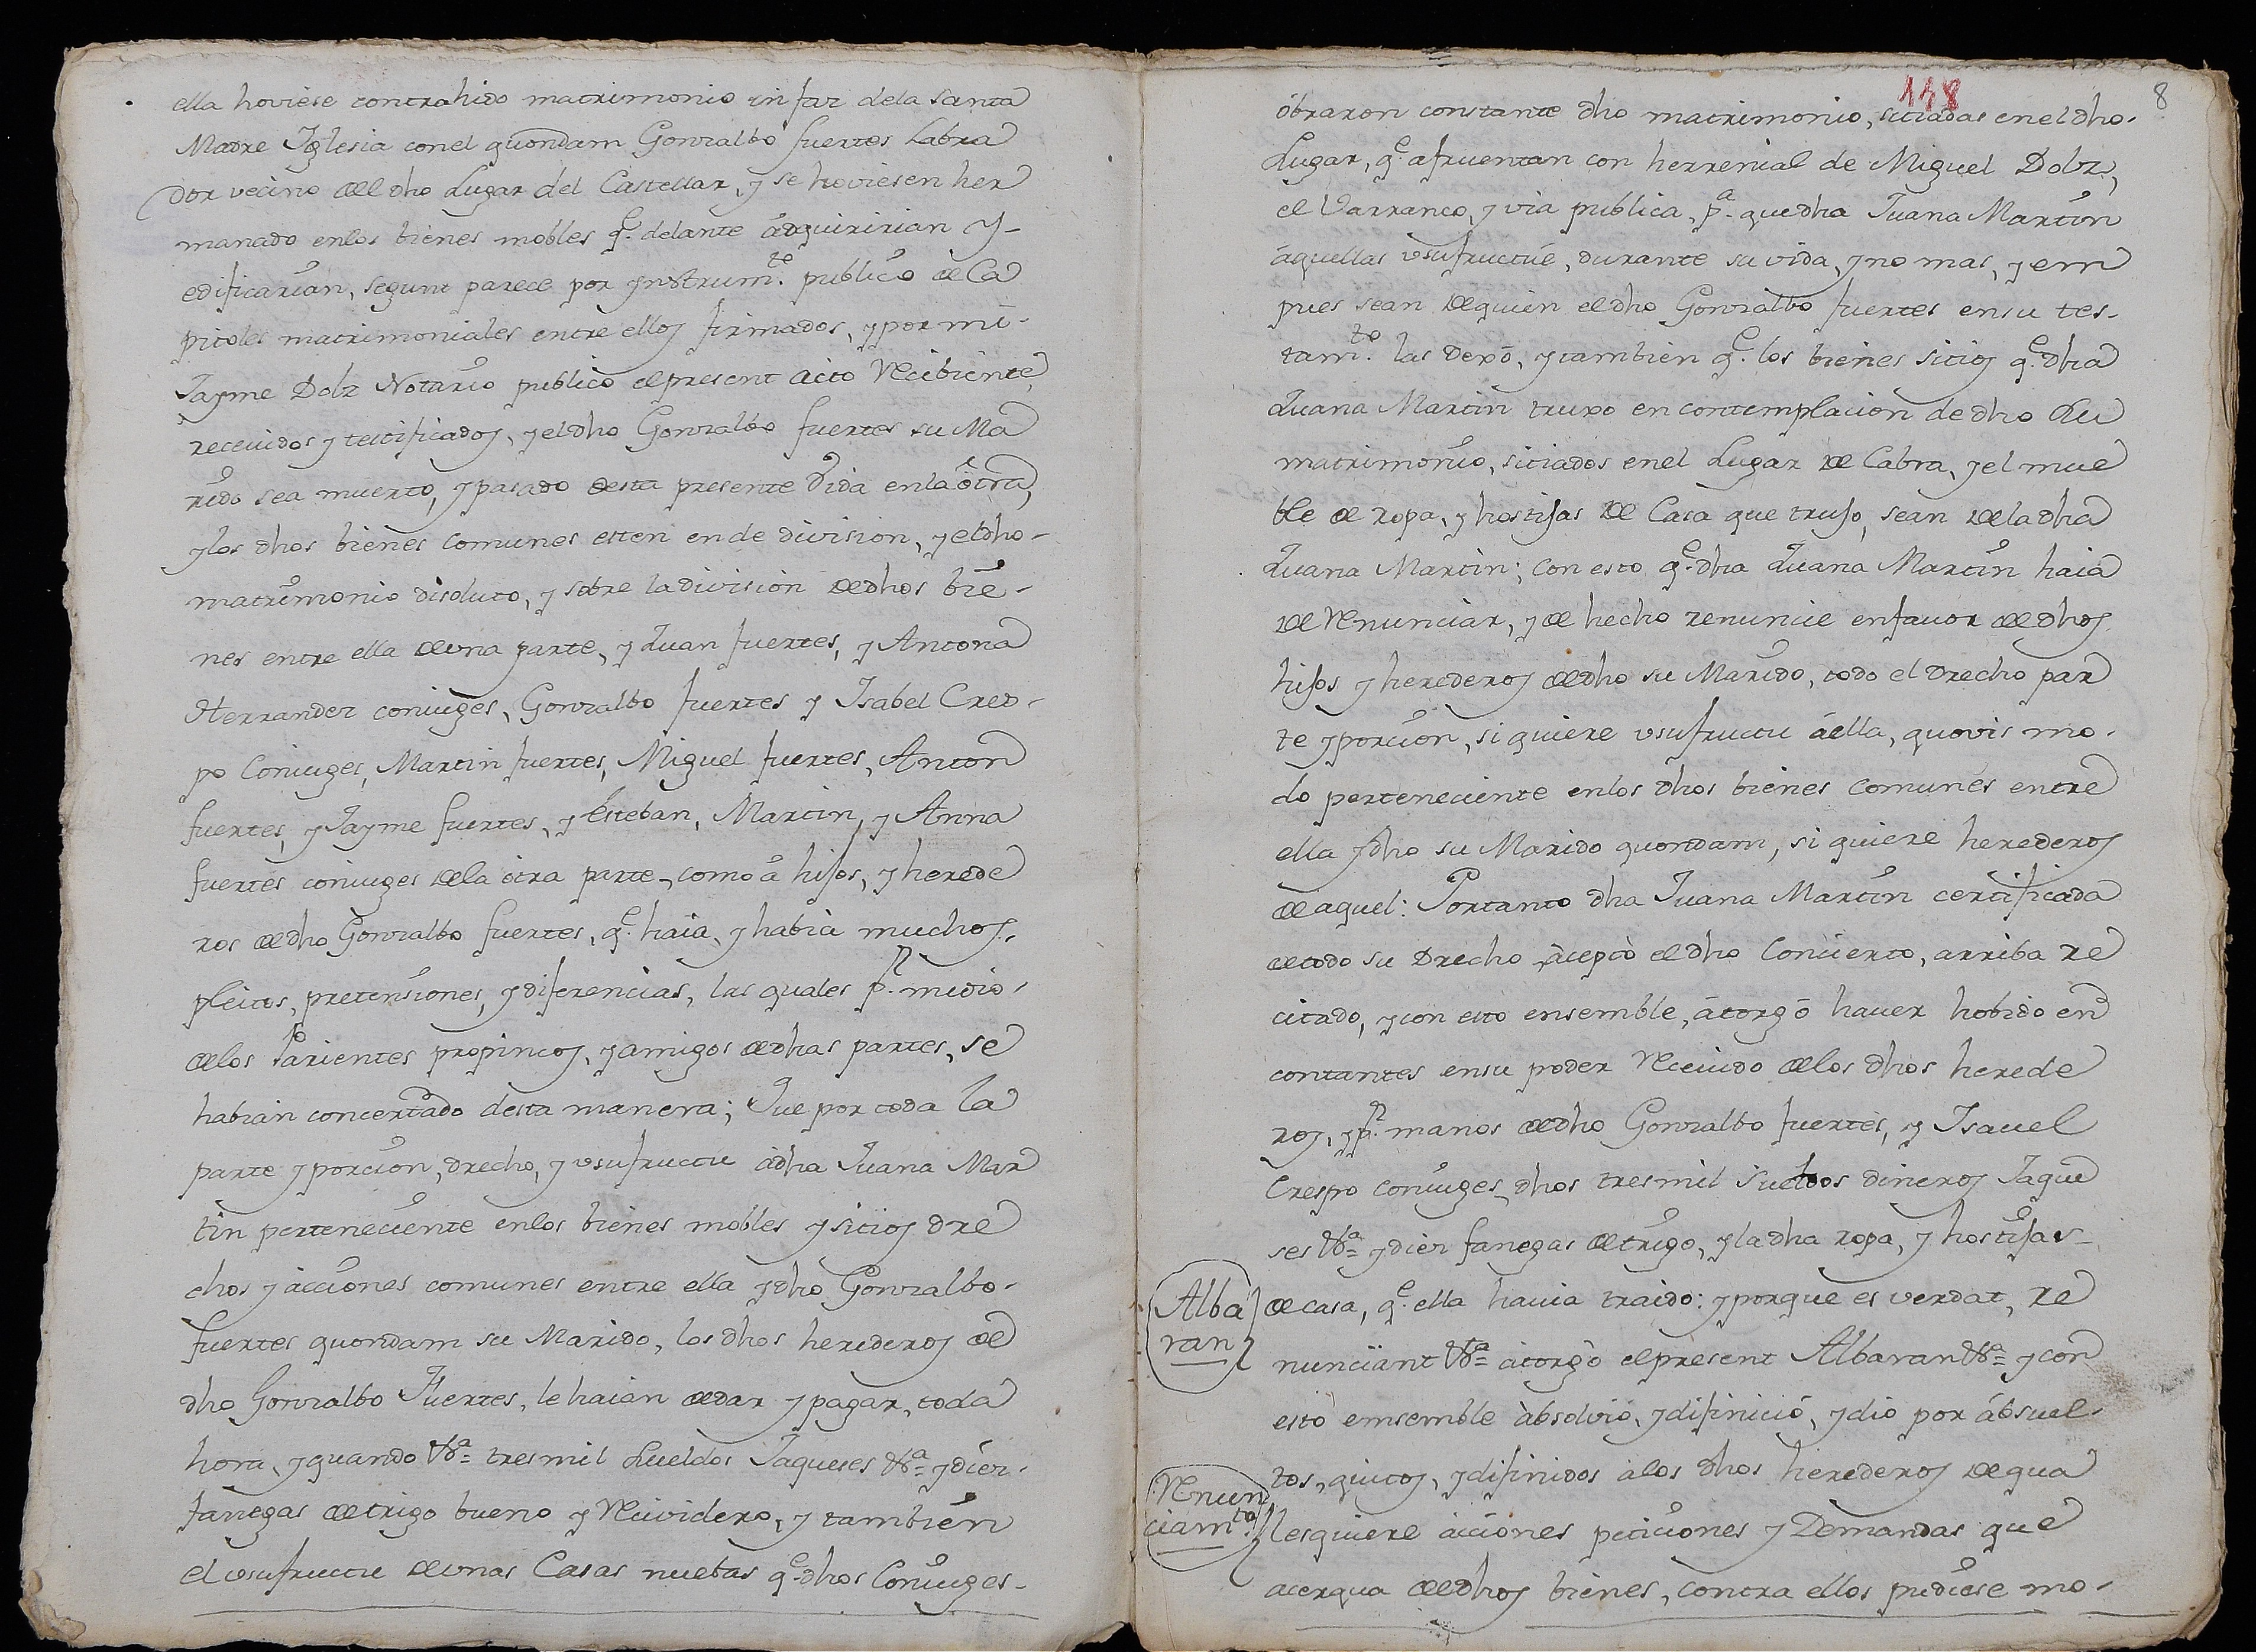 ella hoviese contrahido matrimonio in faz dela Santa
Madre Iglesia conel quondam Gonzalbo fuertes Labra
dor vecino del dho Lugar del Castellar, y se hoviesen her
manado enlos bienes mobles q.e delante adquiririan y-
edificarian, segunt parece por ynstrum.to publico de Ca
pitoles matrimoniales entre ellos firmados, y por mi-
Jayme Dolz Notario publico el present acto Recibiente,
recevidos y testificados, y el dho Gonzalbo fuertes su Ma
rido sea muerto, y pasado desta presente Vida enla otra,
y los dhos bienes comunes esten en de division, y el dho-
matrimonio disoluto, y sobre la division de dhos bie-
nes entre ella de una parte, y Juan fuertes, y Antona
Herrandez coniuges, Gonzalbo fuertes y Isabel Cres-
po Coniuges, Martin fuertes, Miguel fuertes, Anton
fuertes, y Jayme fuertes, y Esteban, Martin, y Anna
fuertes coniuges dela otra parte, como a hijos, y herede
ros de dho Gonzalbo fuertes, q.e haia, y habia muchos
pleitos, pretensiones, y diferencias, las quales p.r medio-
delos Parientes propincos, y amigos de dhas partes, se
habian concertado desta manera; Que por toda la
parte y porcion, drecho, y usufructu a dha Juana Mar
tin perteneciente enlos bienes mobles y sitios dre
chos y acciones comunes entre ella y dho Gonzalbo-
fuertes quondam su Marido, los dhos herederos de
dho Gonzalbo Fuertes, le haian de dar y pagar, toda
hora, y quando &a= tres mil Sueldos Jaqueses &a= y diez-
fanegas de trigo bueno y Recividero, y tambien
el usufructu de unas Casas nuebas q.e dhos Coniuges-
148
8
obraron constante dho matrimonio, sitiadas enel dho-
Lugar, q.e afruentan con herrenial de Miguel Dolz,
el Varranco, y via publica, p.a que dha Juana Martin
aquellas usufructue, durante su vida, y no mas, y em
pues sean de quien el dho Gonzalbo fuertes en su tes-
tam.to las dexo, y tambien q.e los bienes sitios q.e dha
Juana Martin truxo en contemplacion de dho Su
matrimonio, sitiados enel Lugar de Cabra, y el mue
ble de ropa, y hostijas de Casa que trujo, sean dela dha
Juana Martin; con esto q.e dha Juana Martin haia
de Renunciar, y de hecho renuncie enfavor de dhos
hijos y herederos de dho su Marido, todo el drecho par
te y porcion, si quiere usufructu a ella, quovis mo-
do perteneciente enlos dhos bienes comunes entre
ella y dho su Marido quondam, si quiere herederos
de aquel: Portanto dha Juana Martin certificada
de todo su Drecho, acepto el dho Concierto, arriba re
citado, y con esto ensemble, atorgo haver hobido en
contantes ensu poder Recevido delos dhos herede
ros, y p.r manos de dho Gonzalbo fuertes, y Isavel
Crespo coniuges, dhos tres mil Sueldos dineros Jaque
ses &a= y diez fanegas de trigo, y la dha ropa, y hostijas-
Alba
ran
de casa, q.e ella havia traido: y porque es verdat, re
nunciant &a= atorgo el present Albaran &a= y con
esto emsemble absolvio, y difinicio, y dio por absuel-
Renun
ciam.to
tos, quitos, y difinidos alos dhos herederos de qua
lesquiere acciones peticiones y Demandas que
acerqua de dhos bienes, contra ellos pudiese mo-